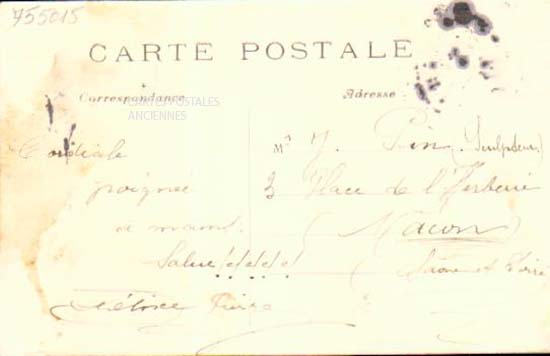 755015
CARTE POSTALE
Correspondance
Adresse
CARTES POSTALES
ANCIENNES
Cordiale
poignée
Salue !!!!!
Mr J. Pin (Sculpteur)
3 Place de l'Herberie
(Macon)
Saone et Loire